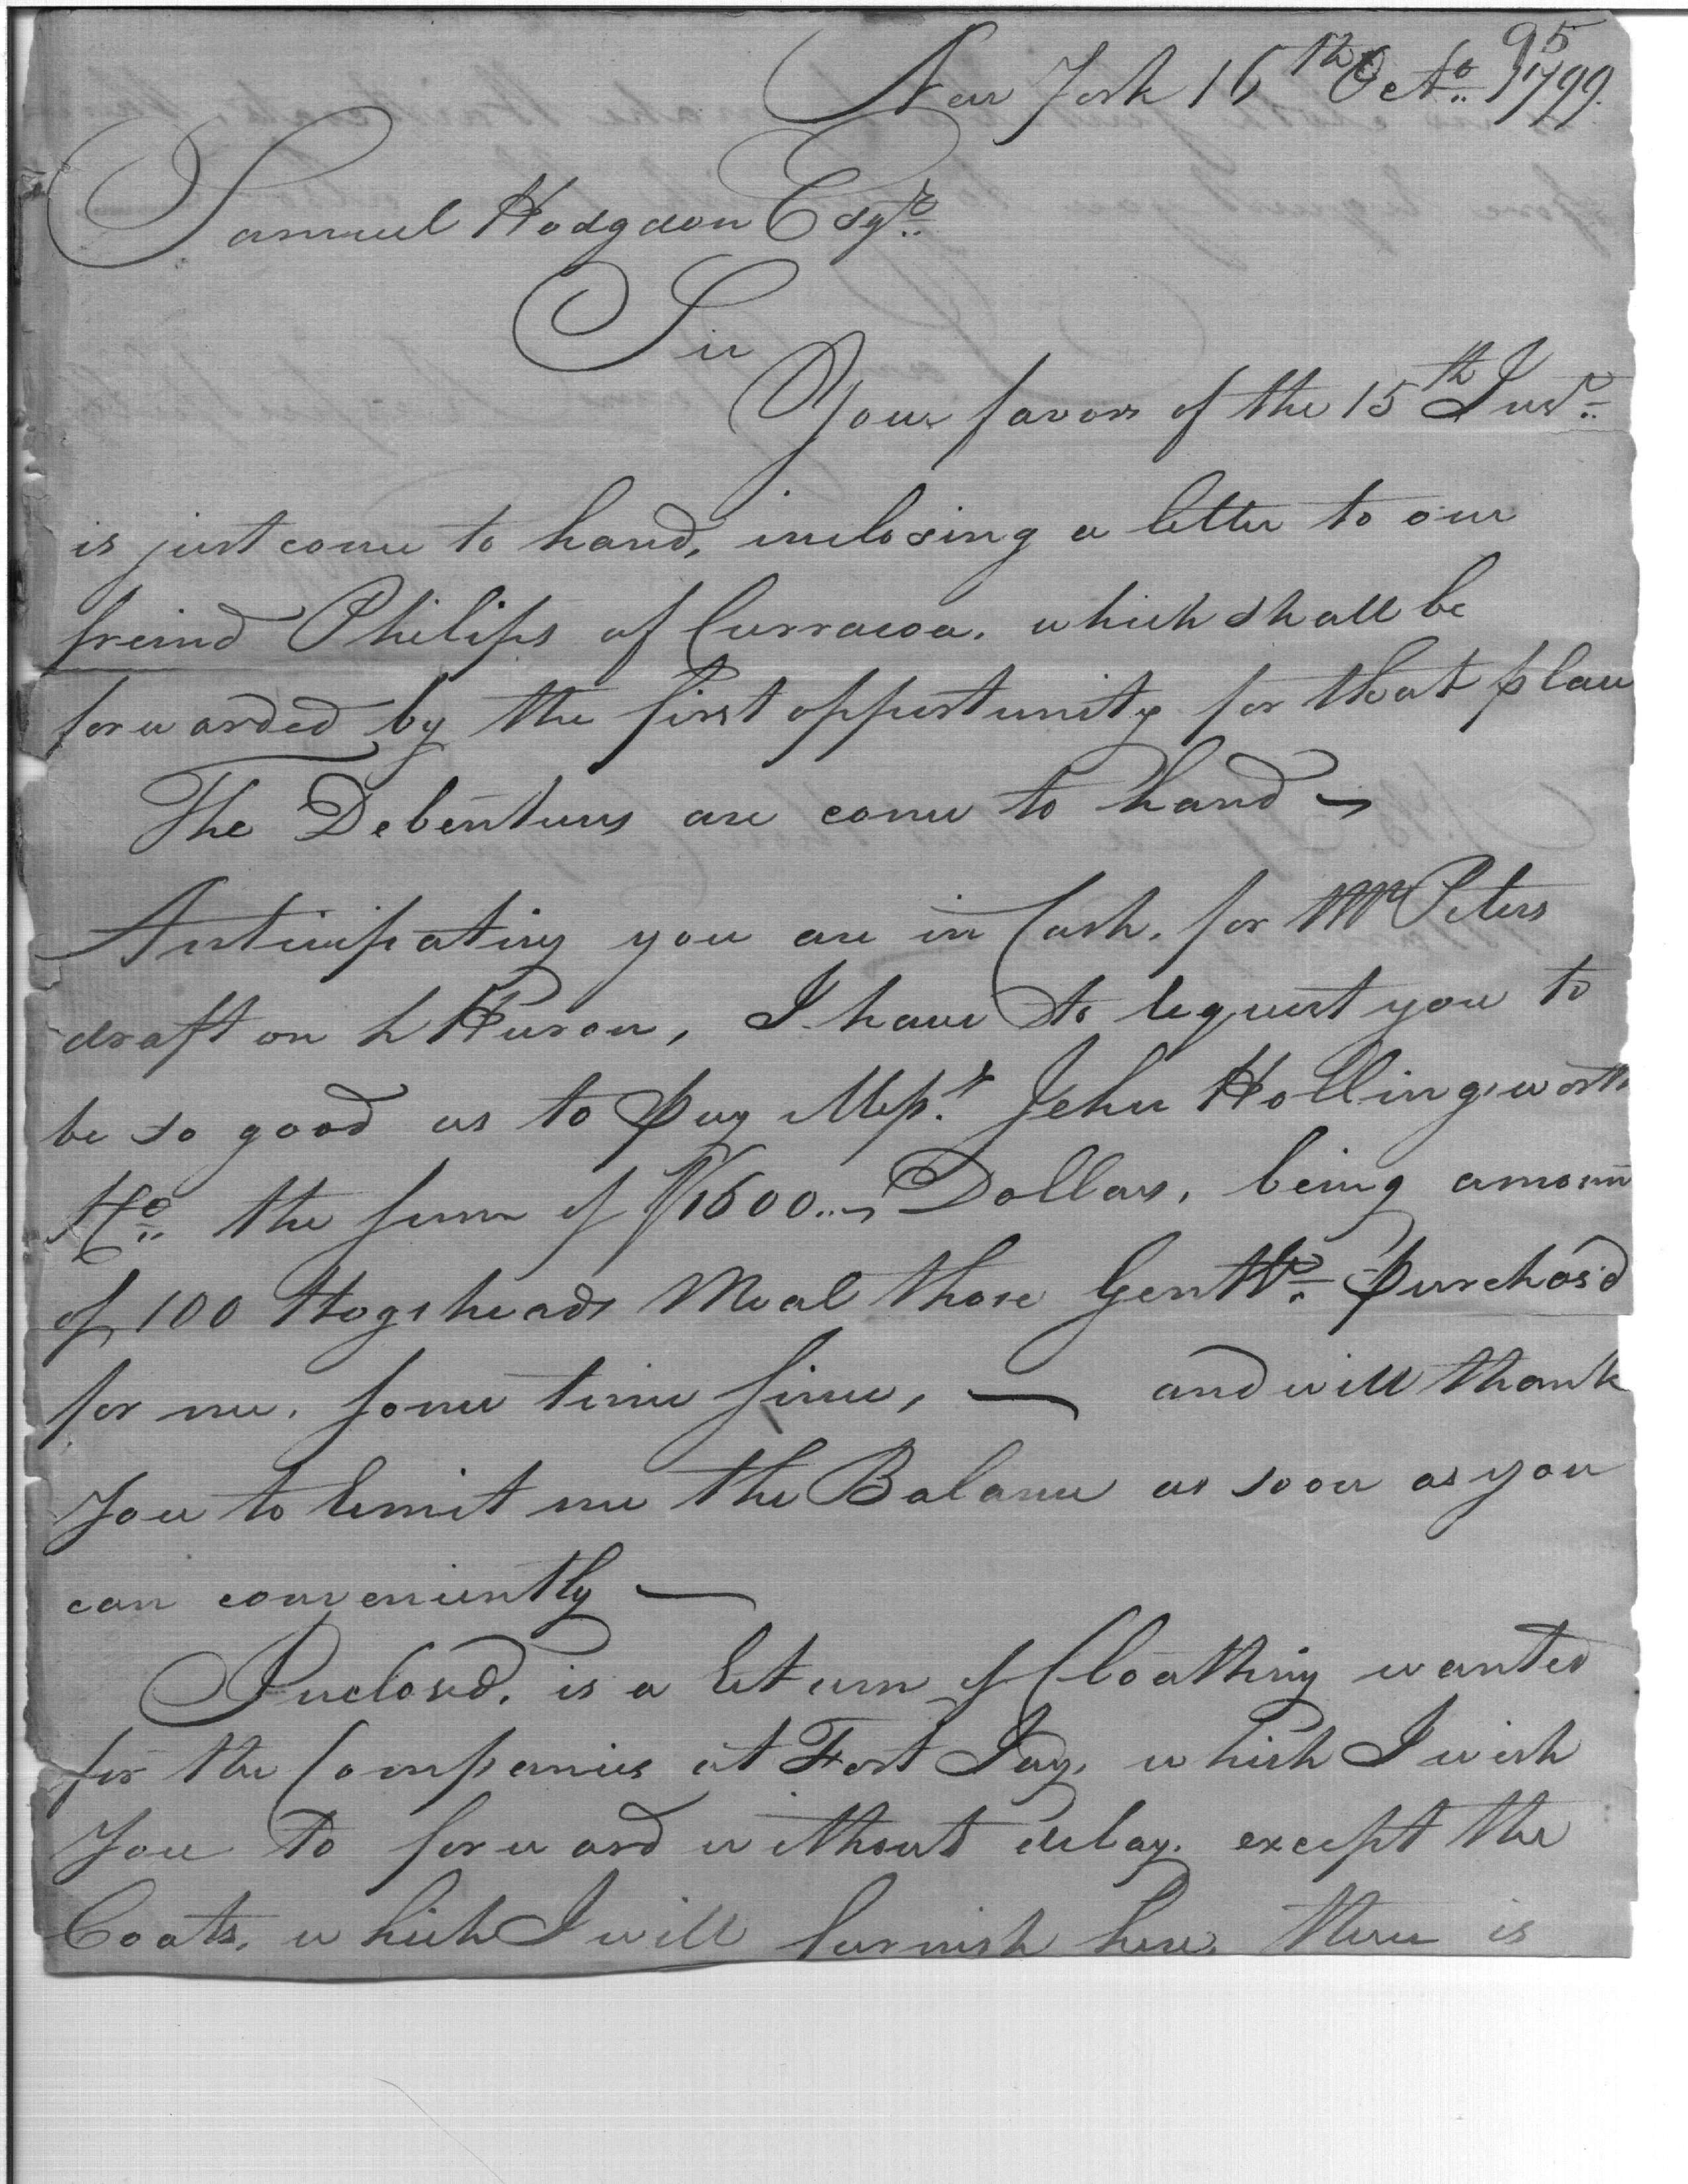 95
New York 16th Octo. 1799.
Samuel Hodgdon Esqr.
Sir
Your favors of the 15th Inst.
is just come to hand, inclosing a letter to our
freind Philips of Curracoa. which shall be
forwarded by the first opportunity for that place
The Debentures are come to hand —
Anticipating you are in Cash. for Mr Peters
draft on Huron, I have to request you to
be so good as to pay Messrs. Jehu Hollingsworth
&Co. the sum of $1600.. Dollars, being amount
of 100 Hogsheads Meal those Gentln. purchas'd
for me. some time since, — and will thank
You to remit me the Balance as soon as you
can conveniently —
Inclosed. is a return of Cloathing wanted
for the Companies at Fort Jay, which I wish
You to forward without delay. except the
Coats. which I will furnish here. there is